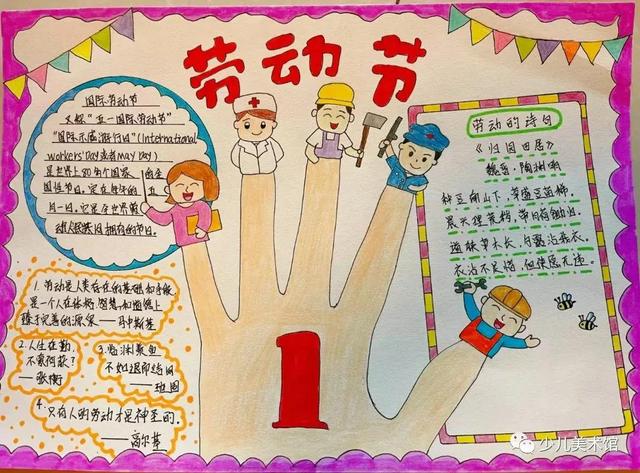 劳动节
国际劳动节
又称“五一国际劳动节”
“国际示威游行日”(International
workers'Day或者May Day)
是世界上80多个国家的全
国性节日。定在每年的五
月一日。它是全世界劳
动人民共同拥有的节日。
1. 劳动是人类存在的基础和手段
是一个人在体格,智慧和道德上
臻于完善的源泉——申斯基
2.人生在勤,
不索何获?
——张衡
3.临渊羡鱼
不如退而结网
——班固
4. 只有人的劳动才是神圣的。
——高尔基
1
劳动的诗句
《归园田居》
魏晋·陶渊明
种豆南山下,草盛豆苗稀。
晨兴理荒秽,带月荷锄归。
道狭草木长,夕露沾我衣。
衣沾不足惜,但使愿无违。
少儿美术馆